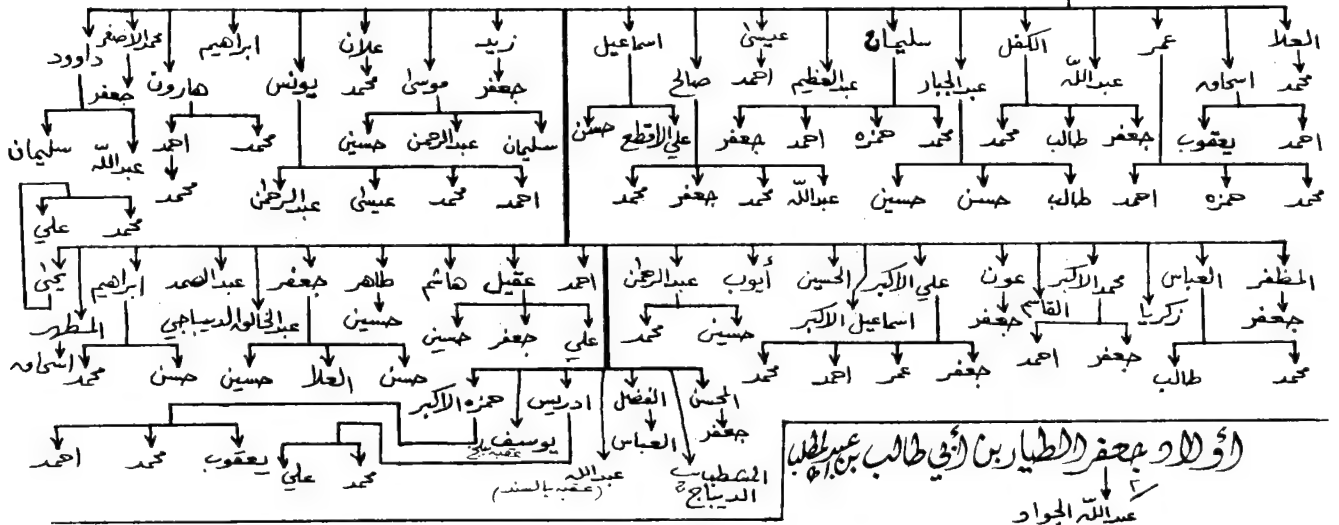 العلا عمر الكفل سليمان عيسى اسماعيل زيد علان ابراهيم محمد الأصغر داوود
محمد اسحاق عبدالله عبدالجبار عبدالعظيم احمد صالح جعفر موسى محمد يونس هارون جعفر
احمد يعقوب جعفر طالب محمد محمد همزه احمد جعفر علي الأقطع حسن سليمان عبدالرحمن حسين محمد احمد عبدالله سليمان
محمد همزه احمد طالب حسن حسين عبدالله محمد جعفر محمد احمد محمد عيسى عبدالرحمن محمد
محمد علي
المظفر العباس محمد الأكبر عون علي الأكبر الحسين أيوب عبدالرحمن احمد عقيل هاشم طاهر جعفر عبدالصمد ابراهيم يحيى
جعفر زكريا القاسم جعفر اسماعيل الأكبر حسين عبدالخالق الديباجي المطهر
محمد طالب جعفر احمد جعفر عمر احمد محمد حسين محمد علي جعفر حسين حسن العلا حسين حسن محمد اسحاق
المحسن الفضل ادريس همزه الأكبر
جعفر العباس يوسف
محمد علي يعقوب محمد احمد
عبدالله
(عقبه بالسند)
الديباج
أولاد جعفر الطيار بن أبي طالب بن عبدالمطلب
٢
عبدالله الجواد